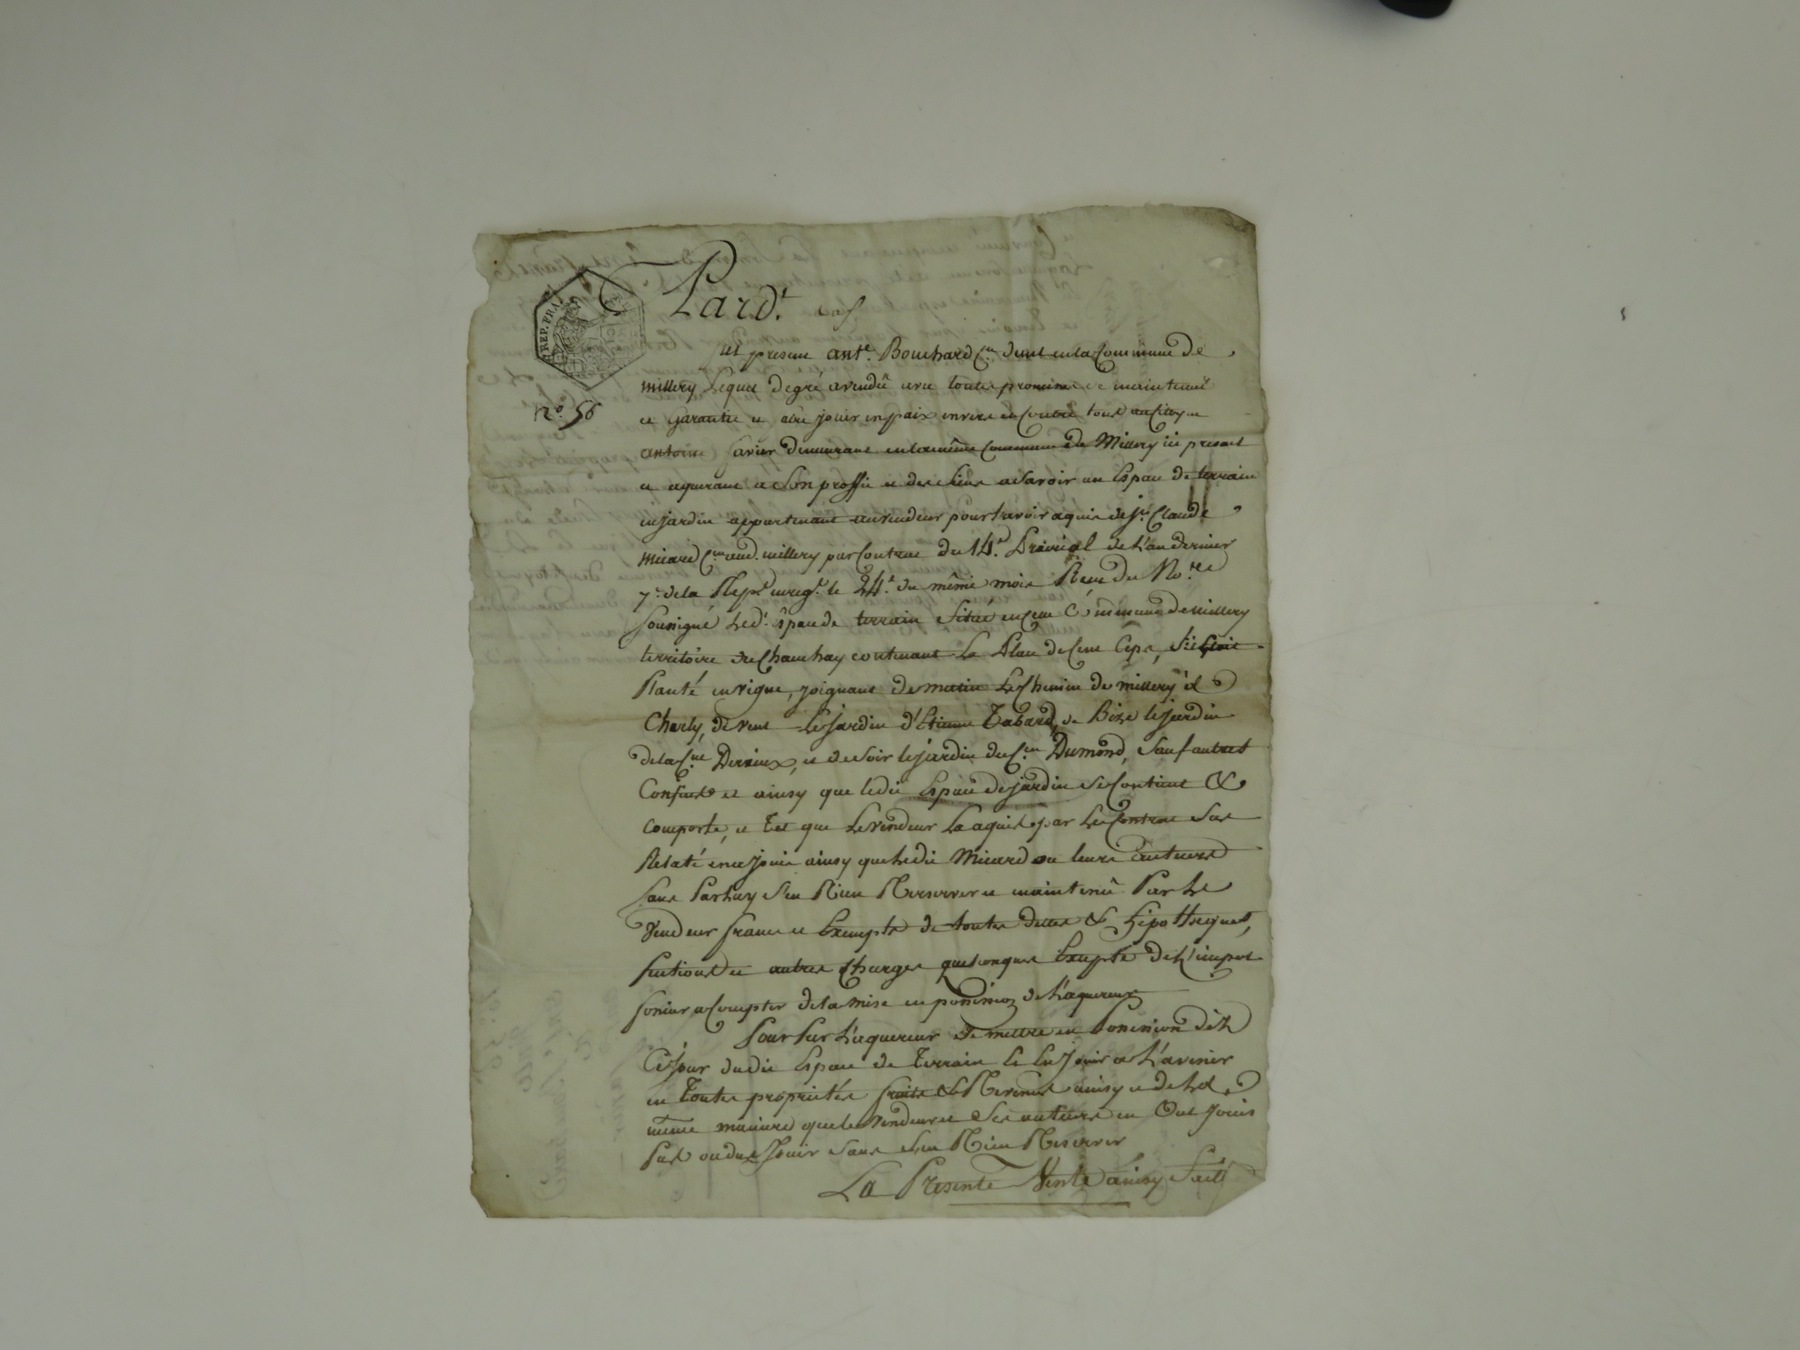 REP. FRA
Pard.t
n.o 56
fut present ant.e Bouchard C.en demt en la Commune de
millery Lequel de gré a vendû avec toutes promesse de maintenuë
et garantie et a faire jouir en paix envers et Contre tous au Citoyen
antoine demeurant en la même Commune de Millery ici present
et aquerant a Son proffit et des Siens a Savoir un Espace de terrain
en jardin appartenant au vendeur pour l'avoir aquis de J.n Claude
Micard C.en aud. millery par Contrat du 14.e Prairial de L'an dernier
7.e de la Rep.e enreg.é le 24.e du même mois Recu du No.re
Soussigné Led.t Espace de terrain Situé en cette Commune de Millery
territoire de Chauchay contenant La Place de Cent Ceps, S'il Etoit
Planté en vigne, joignant de matin Le Chemin de millery à
Charly, de vent Le Jardin d'Etienne Tabard, de Bize le jardin
de la C.ne Derieux, et de Soir le jardin du C.en Dumond, Sauf autres
Confins et ainsy que ledit Espace de jardin Se Contient &
Comporte, et Tel que Le vendeur La aquis par Le Contrat Sus
Relaté en a Joui ainsy que Ledit Micard ou leurs autheurs
Sans Par luy S'en Rien Reserver et maintenû Par Le
Vendeur franc et Exempt de toutes dettes & hipotheques,
pentions et autres Charges quelconques Excepté de L'impot
foncier a Compter de la mise en possession de L'aquereur
Pour Par L'aquereur Se mettre en Possession dès
Ce Jour dudit Espace de Terrain Et En Jouir a L'avenir
en Toutes proprietés fruits & Revenus ainsy et de La
même maniere que le Vendeur et Ses autheurs en Ont Jouis
Pus ou dus Jouir Sans S'en Rien Reserver
La Presente Vente ainsy Faite